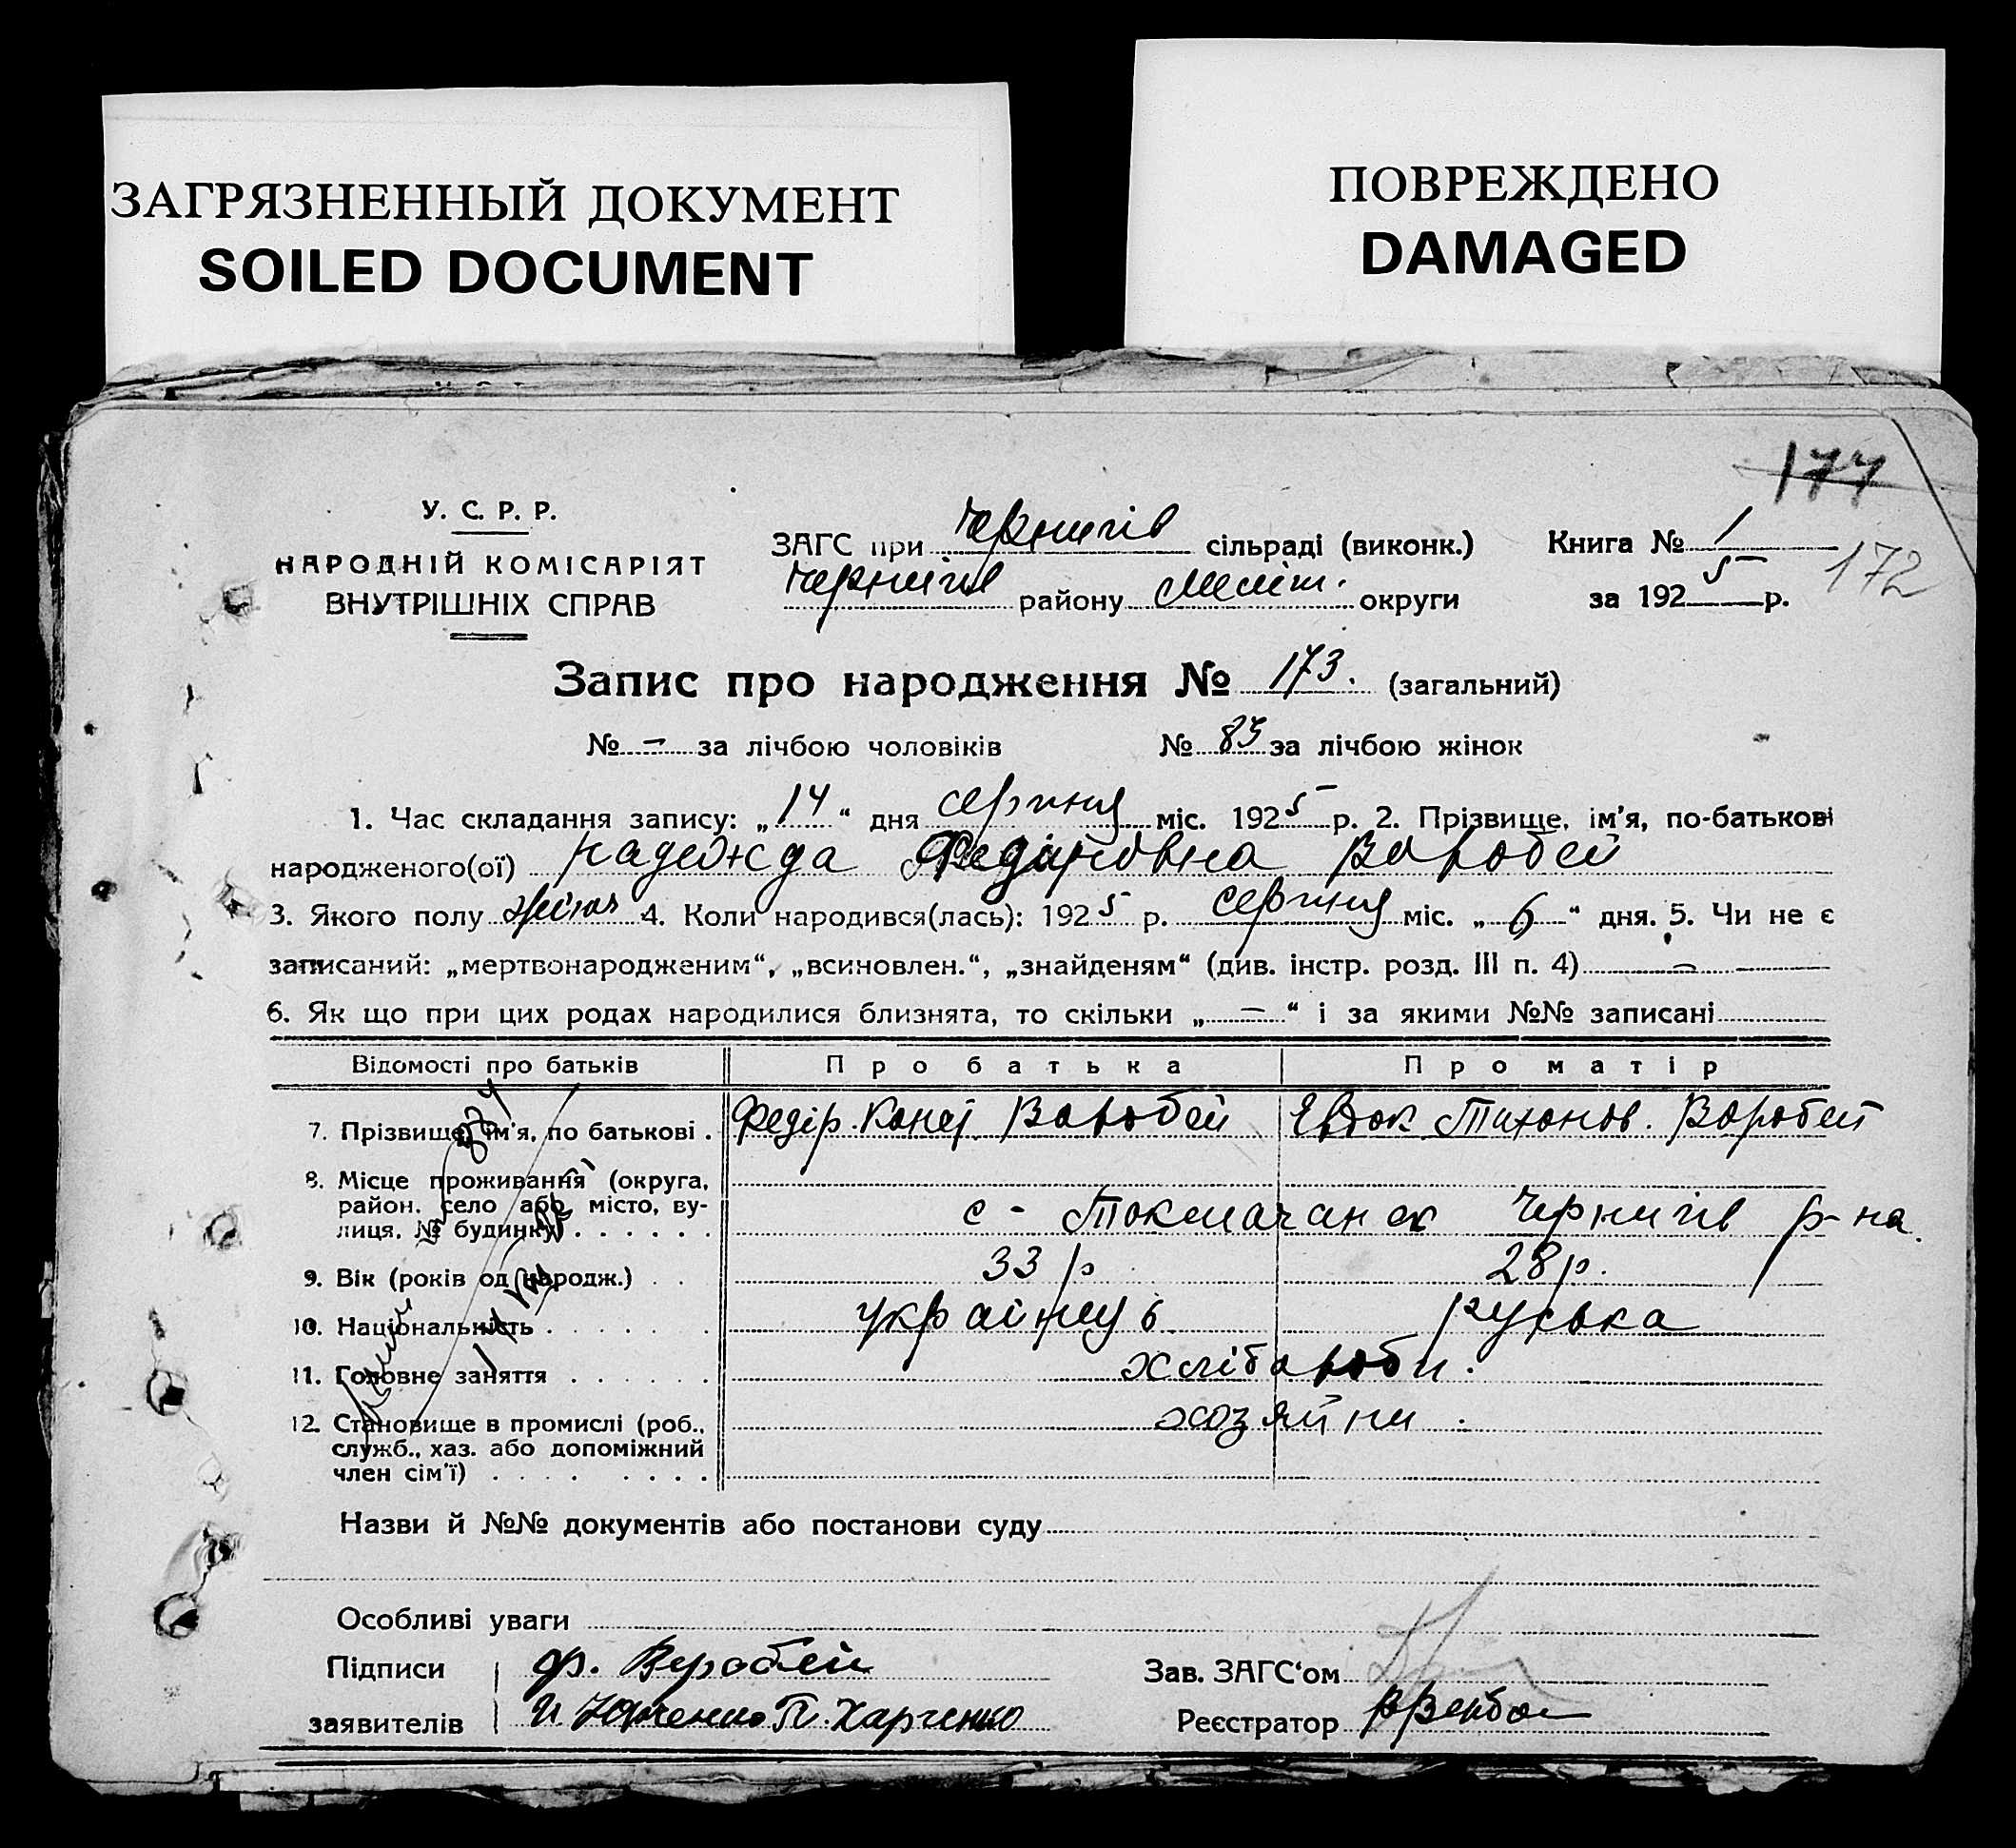 ЗАГРЯЗНЕННЫЙ ДОКУМЕНТ
SOILED DOCUMENT
ПОВРЕЖДЕНО
DAMAGED
177
У. С. Р. Р.
НАРОДНІЙ КОМІСАРІЯТ
ВНУТРІШНІХ СПРАВ
ЗАГС при Чернигів сільраді (виконк.)
Чернигів району Меліт. округи
Книга № 1
за 1925 р.
172
Запис про народження № 173. (загальний)
№ – за лічбою чоловіків № 83 за лічбою жінок
1. Час складання запису: „14“ дня серпня міс. 1925 р. 2. Прізвище, ім'я, по-батькові
народженого(ої) Надежда Федіровна Воробей
3. Якого полу жіноч 4. Коли народився(лась): 1925 р. серпня міс. „6“ дня. 5. Чи не є
записаний: „мертвонародженим“, „всиновлен.“, „знайденям“ (див. інстр. розд. III п. 4) –
6. Як що при цих родах народилися близнята, то скільки „–“ і за якими №№ записані
Відомості про батьків Про батька Про матір
7. Прізвище, ім'я, по батькові . Федір Воробей Евдок Тихонов. Воробей
8. Місце проживання (округа,
район. село або місто, ву-
лиця. № будинку) . . . . . . с - Токмачанск Чернигів р-на.
9. Вік (років од народж.) . . 33 р 28 р.
10. Національність . . . . . . українць руська
11. Головне заняття . . . . . . хлібороби.
12. Становище в промислі (роб., хозяйни.
служб., хаз. або допоміжний
член сім'ї) . . . . . . . .
Назви й №№ документів або постанови суду
Особливі уваги
Підписи Ф. Воробей Зав. ЗАГС'ом
заявителів П. Харченко Реєстратор